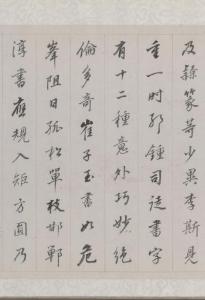 及録篆等少異李斯見
重一时邪鍾司徒書字
有十二種意外巧妙絶
倫多奇崔子玉書如危
峯阻日孤松單枝邯鄲
淳書應規入矩方圓乃